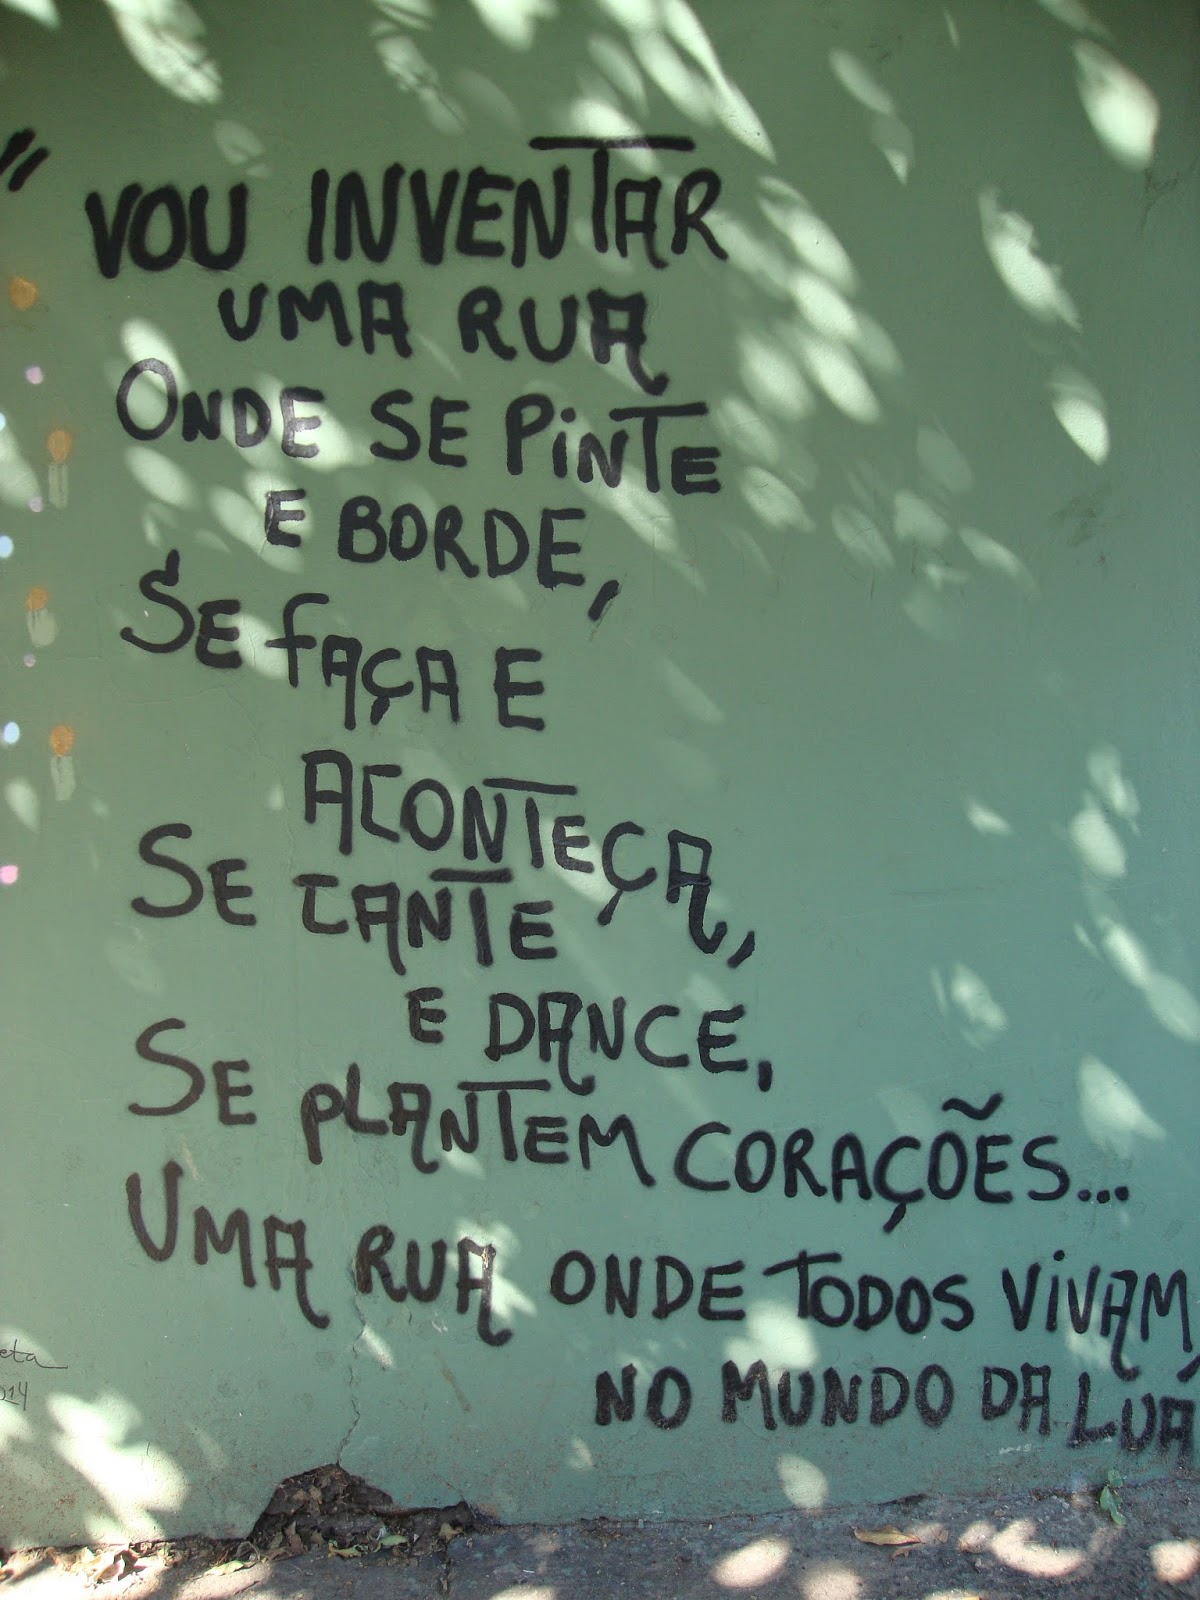 "VOU INVENTAR
UMA RUA
ONDE SE PINTE
E BORDE,
SE FAÇA E
ACONTEÇA,
SE CANTE
E DANCE,
SE PLANTEM CORAÇÕES...
UMA RUA ONDE TODOS VIVAM
NO MUNDO DA LUA